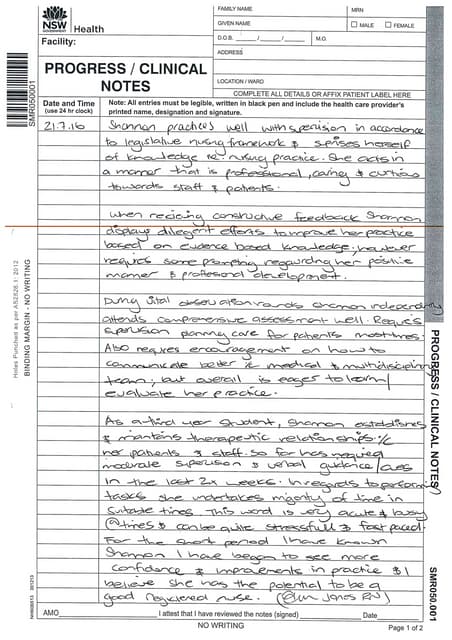 NSW
GOVERNMENT
Health
Facility:
FAMILY NAME
MRN
GIVEN NAME
MALE
FEMALE
D.O.B. ___/___/___
M.O.
ADDRESS
LOCATION / WARD
COMPLETE ALL DETAILS OR AFFIX PATIENT LABEL HERE
SMR050001
PROGRESS / CLINICAL
NOTES
Date and Time
(use 24 hr clock)
Note: All entries must be legible, written in black pen and include the health care provider's
printed name, designation and signature.
21.7.16
Shannon practices well with supervision in accordance
to legislative nursing framework &
of knowledge re nursing practice. She acts in
a manner that is professional, caring &
towards staff & patients.
When recieving constructive feedback Shannon
displays dilegent efforts to improve her practice
based on evidence based knowledge, however
requires some prompting regarding her positive
manner & professional development.
During vital observation rounds Shannon independently
attends comprehensive assessment well. Requires
supervision planning care for patients most times.
Also requires encouragement on how to
communicate better medical & multidisciplinary
team, but overall is eager to learn/
evaluate her practice.
As a third year student, Shannon establishes
& maintains therapeutic relationships
her patients & staff. so far has required
moderate supervision & verbal guidance/cues
in the last 2x weeks. In regards to performing
tasks she undertakes majority of time in
suitable times. This ward is very acute & busy
@ times & can be quite stressfull & fast paced.
For the short period I have known
Shannon I have began to see more
confidence & improvements in practice & I
believe she has the potential to be a
good registered nurse. Jones RN)
Holes Punched as per AS2828.1: 2012
BINDING MARGIN - NO WRITING
PROGRESS / CLINICAL NOTES
SMR050.001
AMO
I attest that I have reviewed the notes (signed)
Date
NO WRITING
Page 1 of 2